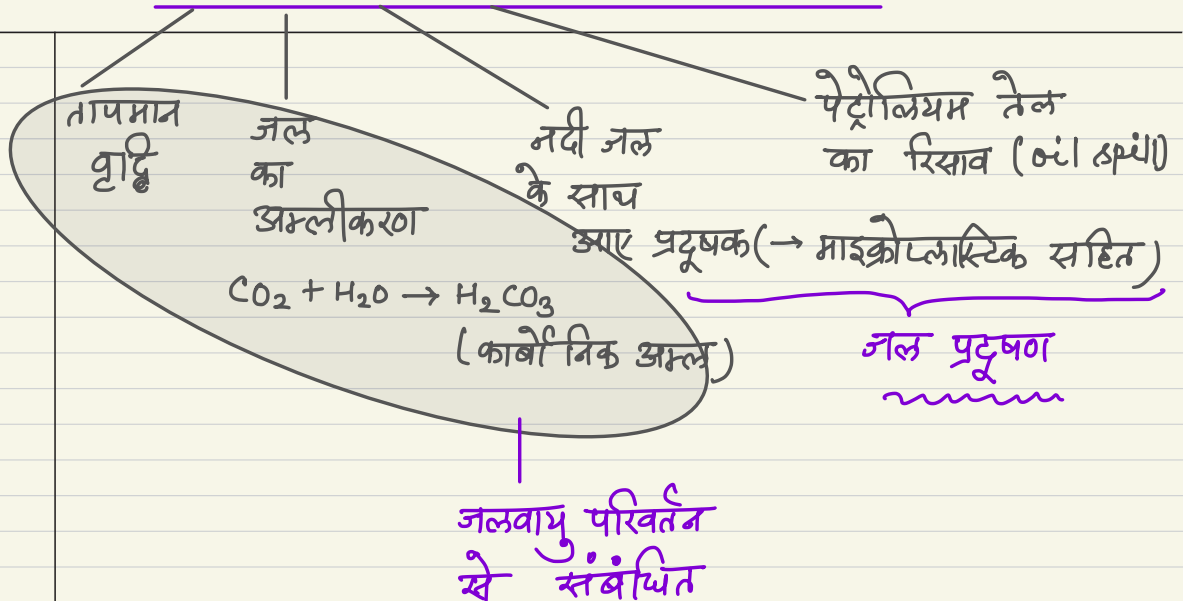 तापमान
वृद्धि
जल
का
अम्लीकरण
CO₂ + H₂O → H₂CO₃
(कार्बोनिक अम्ल)
नदी जल
के साथ
आए प्रदूषक (→ माइक्रोप्लास्टिक सहित)
पेट्रोलियम तेल
का रिसाव (oil spill)
जल प्रदूषण
जलवायु परिवर्तन
से संबंधित